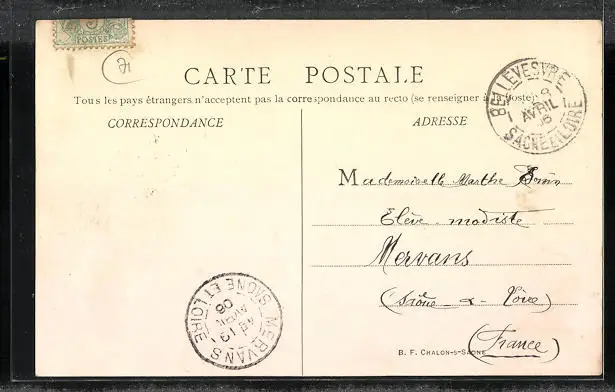 5
POSTES
CARTE POSTALE
Tous les pays étrangers n'acceptent pas la correspondance au recto (se renseigner à la poste)
CORRESPONDANCE
ADRESSE
BELLEVESVRE
8
AVRIL
06
SAONE ET LOIRE
Mademoiselle Marthe
Elève modiste
Mervans
(Saône & Loire)
(France)
MERVANS
AVRIL
06
SAONE ET LOIRE
B. F. CHALON-S-SAONE